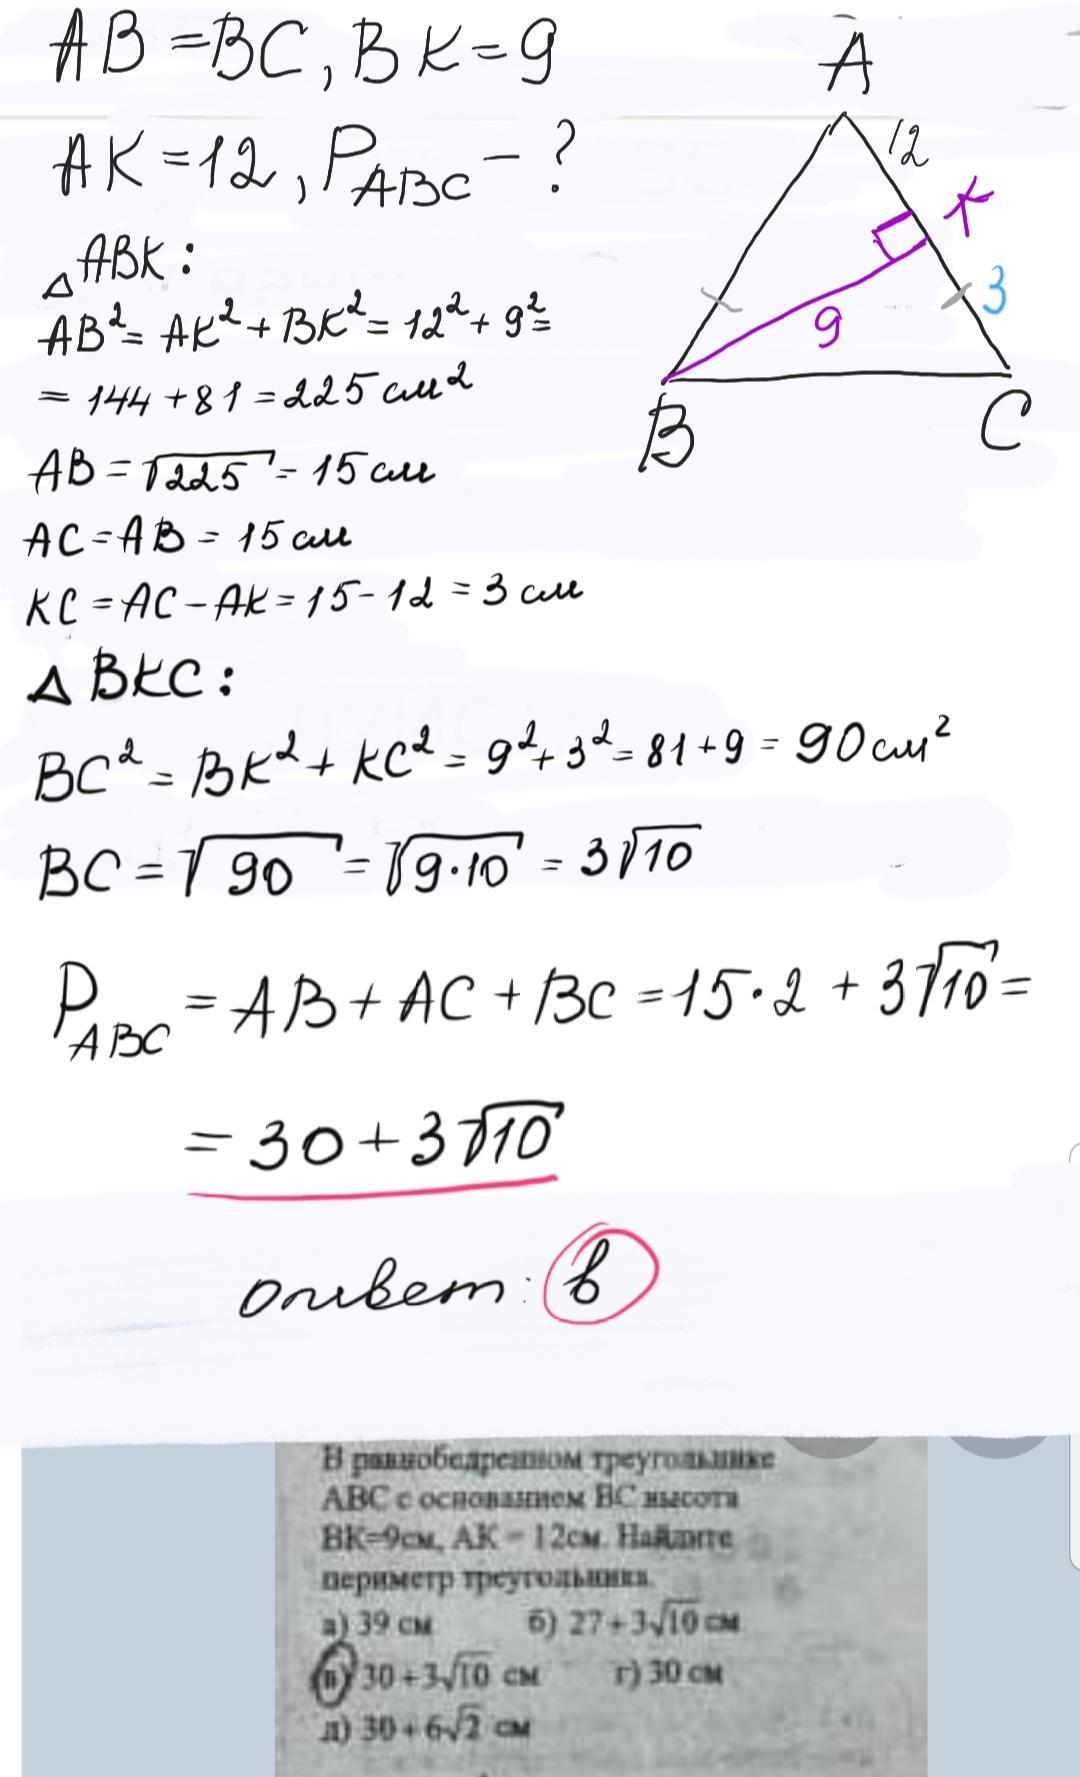 AB=BC, BK=9
AK=12, P_ABC - ?
△ABK:
AB²= AK²+BK²=12²+9²=
= 144+81=225 см²
AB=√225 = 15 см
AC=AB = 15 см
KC=AC-AK=15-12=3 см
△BKC:
BC²=BK²+KC²=9²+3²=81+9=90 см²
BC=√90 = √9·10 = 3√10
P_ABC = AB+AC+BC=15·2+3√10=
= 30+3√10
ответ: в
A
12
K
3
9
B
C
В равнобедренном треугольнике
ABC с основанием BC высота
BK=9см, AK - 12см. Найдите
периметр треугольника.
а) 39 см б) 27+3√10 см
в) 30+3√10 см г) 30 см
д) 30+6√2 см